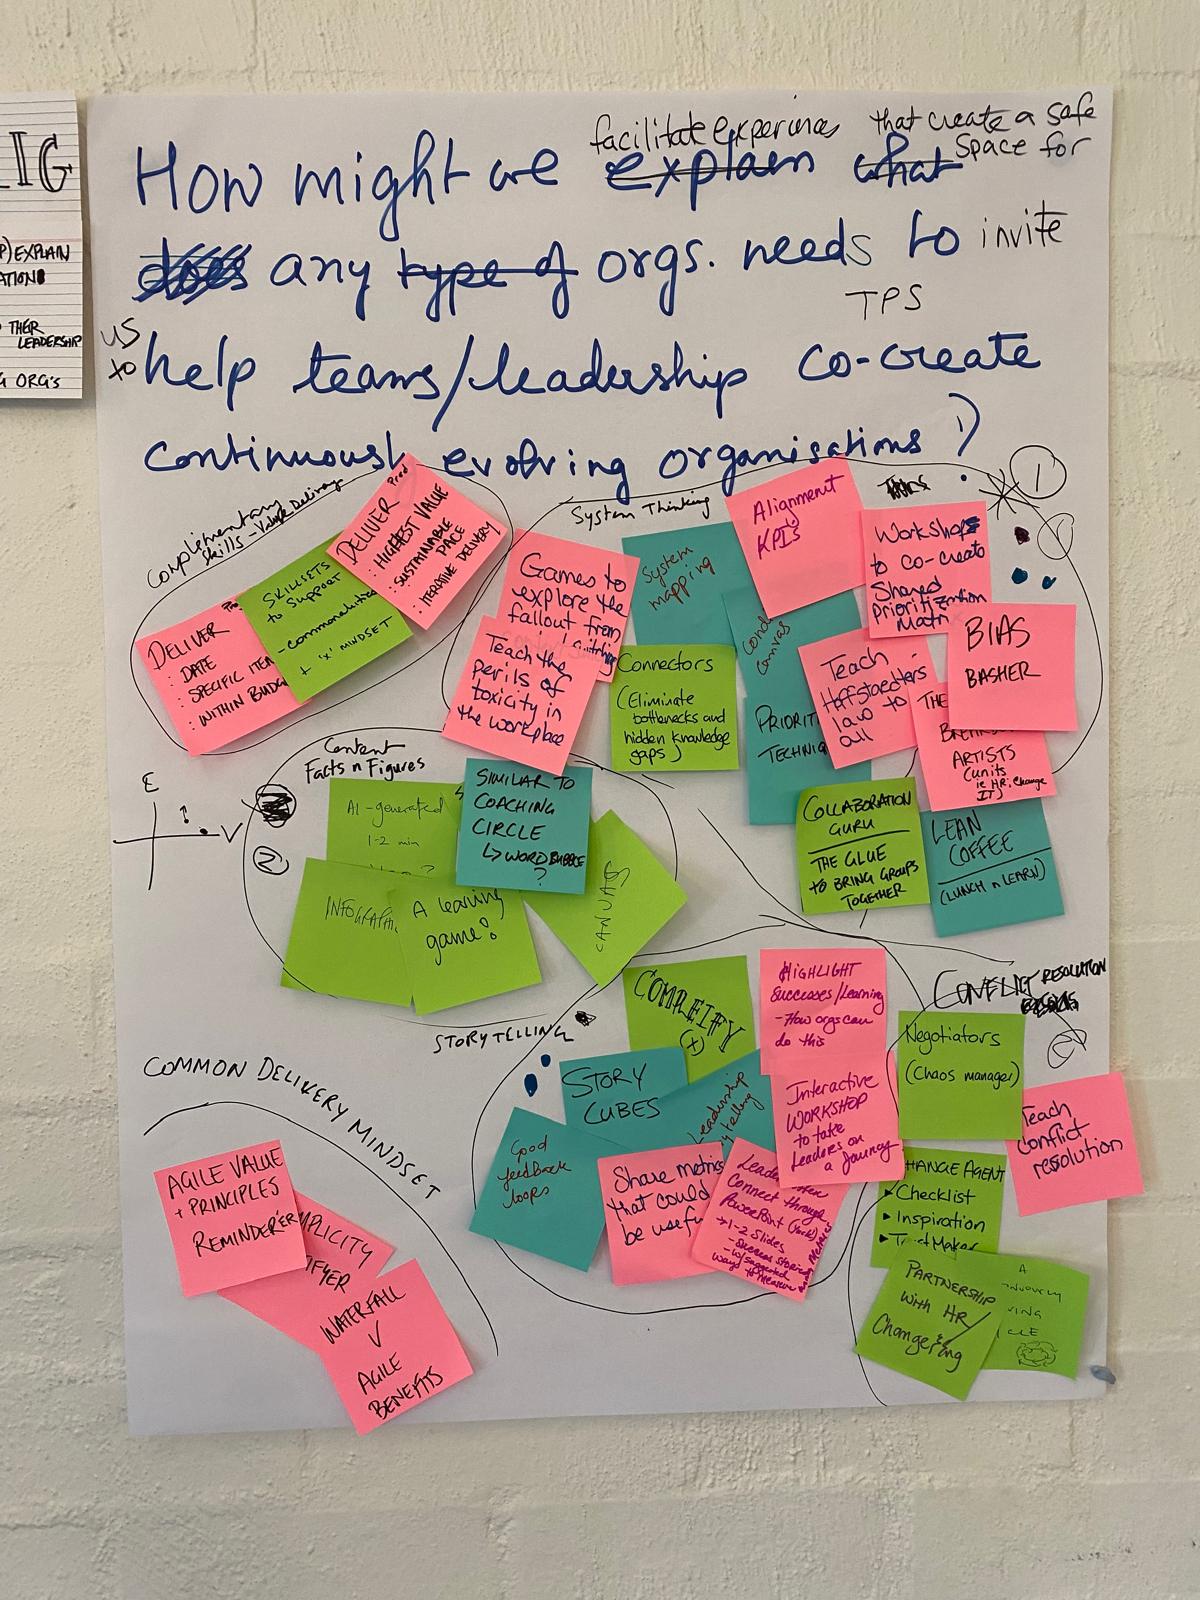 IG
EXPLAIN
THEIR
LEADERSHIP
ORG's
facilitate experiences that create a safe
space for
How might we explain what
does any type of orgs. needs to invite
TPS
us
to
help teams/leadership co-create
continuously evolving organisations?
Complimentary
Skills - Value Delivery
Prod
DELIVER
: HIGHEST VALUE
: SUSTAINABLE
PACE
: ITERATIVE DELIVERY
SKILLSETS
to SUPPORT
- commonalities
+ 'x' MINDSET
DELIVER
: DATE
: SPECIFIC
: WITHIN
System Thinking
1
Games to
explore the
fallout from
Teach the
perils of
toxicity in
the workplace
System
mapping
Alignment
KPI's
Workshops
to co-create
Shared
Prioritization
Connectors
(Eliminate
bottlenecks and
hidden knowledge
gaps)
Canvas
Teach
law to
all
BIAS
BASHER
THE
ARTISTS
(units
ie HR, Change
IT)
COLLABORATION
GURU
THE GLUE
to BRING GROUPS
TOGETHER
LEAN
COFFEE
(LUNCH n LEARN)
E
V
Content
Facts n Figures
2
AI-generated
1-2 min
SIMILAR TO
COACHING
CIRCLE
↳ WORD BUBBLE
?
A learning
game?
CANVAS
STORYTELLING
COMPLEIFY
(x)
HIGHLIGHT
Successes/Learning
- How orgs can
do this
STORY
CUBES
Leadership
Interactive
WORKSHOP
to take
Leaders on
a Journey
Good
feedback
loops
Share metrics
that could
be useful
Connect through
PowerPoint
→ 1-2 Slides
- Success stories
CONFLICT RESOLUTION
Negotiators
(Chaos manager)
Teach
Conflict
resolution
CHANGE AGENT
▸ Checklist
▸ Inspiration
PARTNERSHIP
with HR/
A
COMMON DELIVERY MINDSET
AGILE VALUE
+ PRINCIPLES
REMINDER'ER
WATERFALL
V
AGILE
BENEFITS